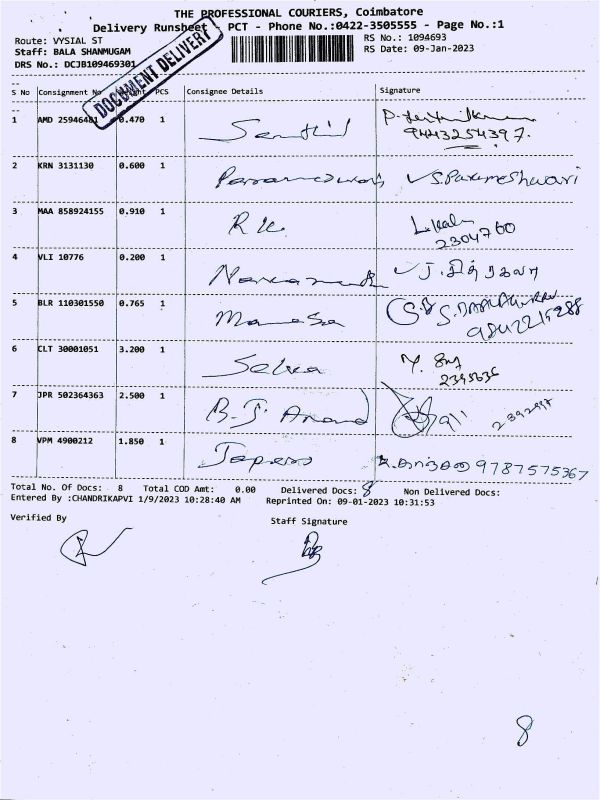 THE PROFESSIONAL COURIERS, Coimbatore
Delivery Runsheet - PCT - Phone No.:0422-3505555 - Page No.:1
Route: VYSIAL ST
RS No.: 1094693
Staff: BALA SHANMUGAM
RS Date: 09-Jan-2023
DRS No.: DCJB109469301
DOCUMENT DELIVERY
S No Consignment No PCS Consignee Details Signature
1 AMD 0.470 1 Senthil
9443254397.
2 KRN 3131130 0.600 1 V.S.Parameshwari
3 MAA 858924155 0.910 1 R K.
2304760
4 VLI 10776 0.200 1
5 BLR 110301550 0.765 1
6 CLT 30001051 3.200 1 Selva
2395636
7 JPR 502364363 2.500 1 B.J. Anand
8 VPM 4900212 1.850 1 9787575367
Total No. Of Docs: 8 Total COD Amt: 0.00 Delivered Docs: 8 Non Delivered Docs:
Entered By :CHANDRIKAPVI 1/9/2023 10:28:40 AM Reprinted On: 09-01-2023 10:31:53
Verified By
Staff Signature
8